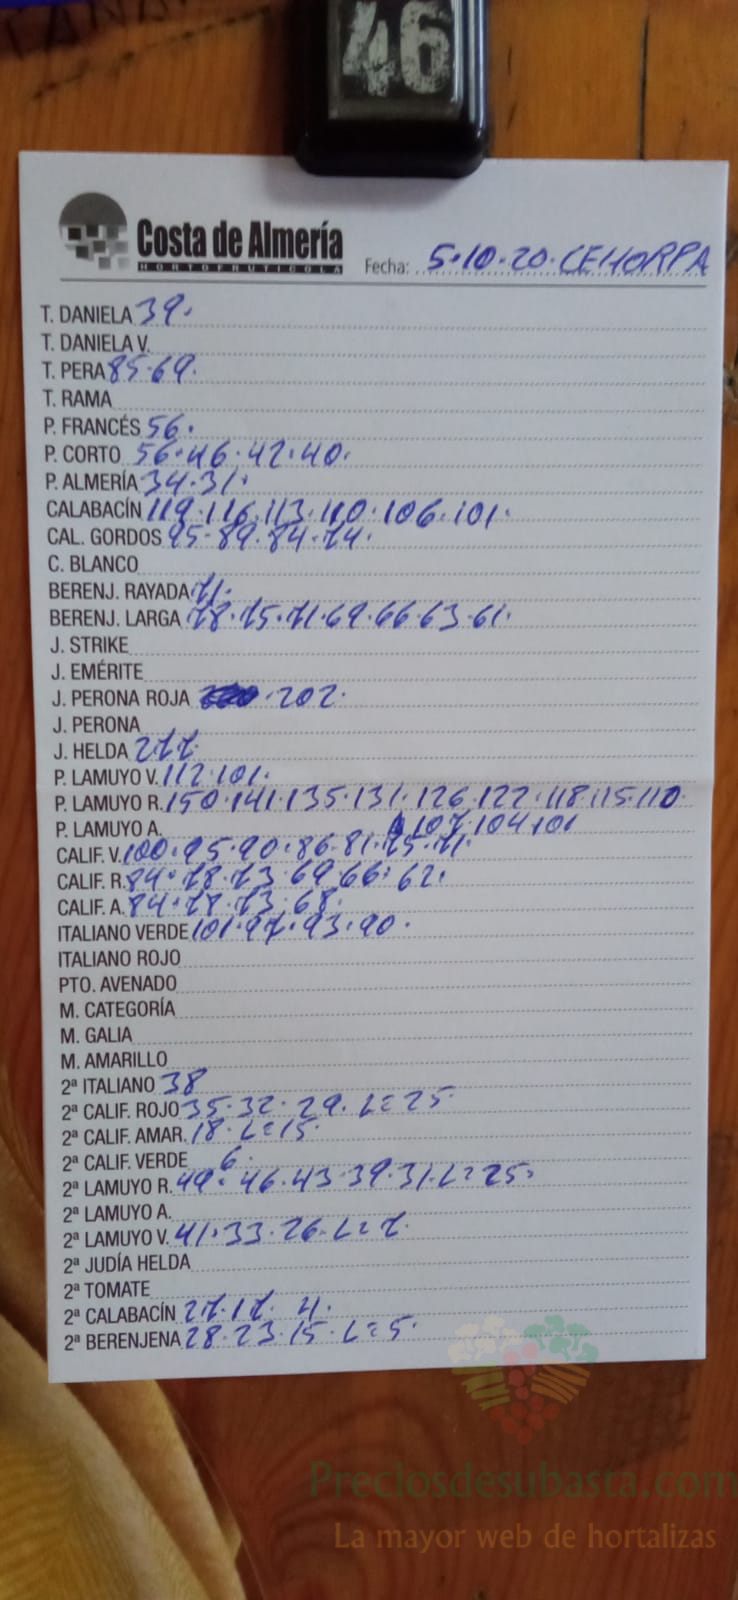 46
Costa de Almería
HORTOFRUTÍCOLA
Fecha: 5·10·20·CEHORPA
T. DANIELA 39.
T. DANIELA V.
T. PERA 85·69.
T. RAMA
P. FRANCÉS 56.
P. CORTO 56·46·42·40.
P. ALMERÍA 34·31.
CALABACÍN 119·116·113·110·106·101.
CAL. GORDOS 95·89·84·74.
C. BLANCO
BERENJ. RAYADA 71.
BERENJ. LARGA 78·75·71·69·66·63·61.
J. STRIKE
J. EMÉRITE
J. PERONA ROJA ·202.
J. PERONA
J. HELDA 277.
P. LAMUYO V. 112·101.
P. LAMUYO R. 150·141·135·131·126·122·118·115·110·
P. LAMUYO A. 107·104·101
CALIF. V. 100·95·90·86·81·75·71.
CALIF. R. 84·78·73·69·66·62.
CALIF. A. 84·78·73·68.
ITALIANO VERDE 101·97·93·90.
ITALIANO ROJO
PTO. AVENADO
M. CATEGORÍA
M. GALIA
M. AMARILLO
2ª ITALIANO 38
2ª CALIF. ROJO 35·32·29·L=25
2ª CALIF. AMAR. 18·L=15
2ª CALIF. VERDE 6.
2ª LAMUYO R. 49·46·43·39·31·L=25.
2ª LAMUYO A.
2ª LAMUYO V. 41·33·26·L=7.
2ª JUDÍA HELDA
2ª TOMATE
2ª CALABACÍN 27·17· 4.
2ª BERENJENA 28·23·15·L=5.
Preciosdesubasta.com
La mayor web de hortalizas